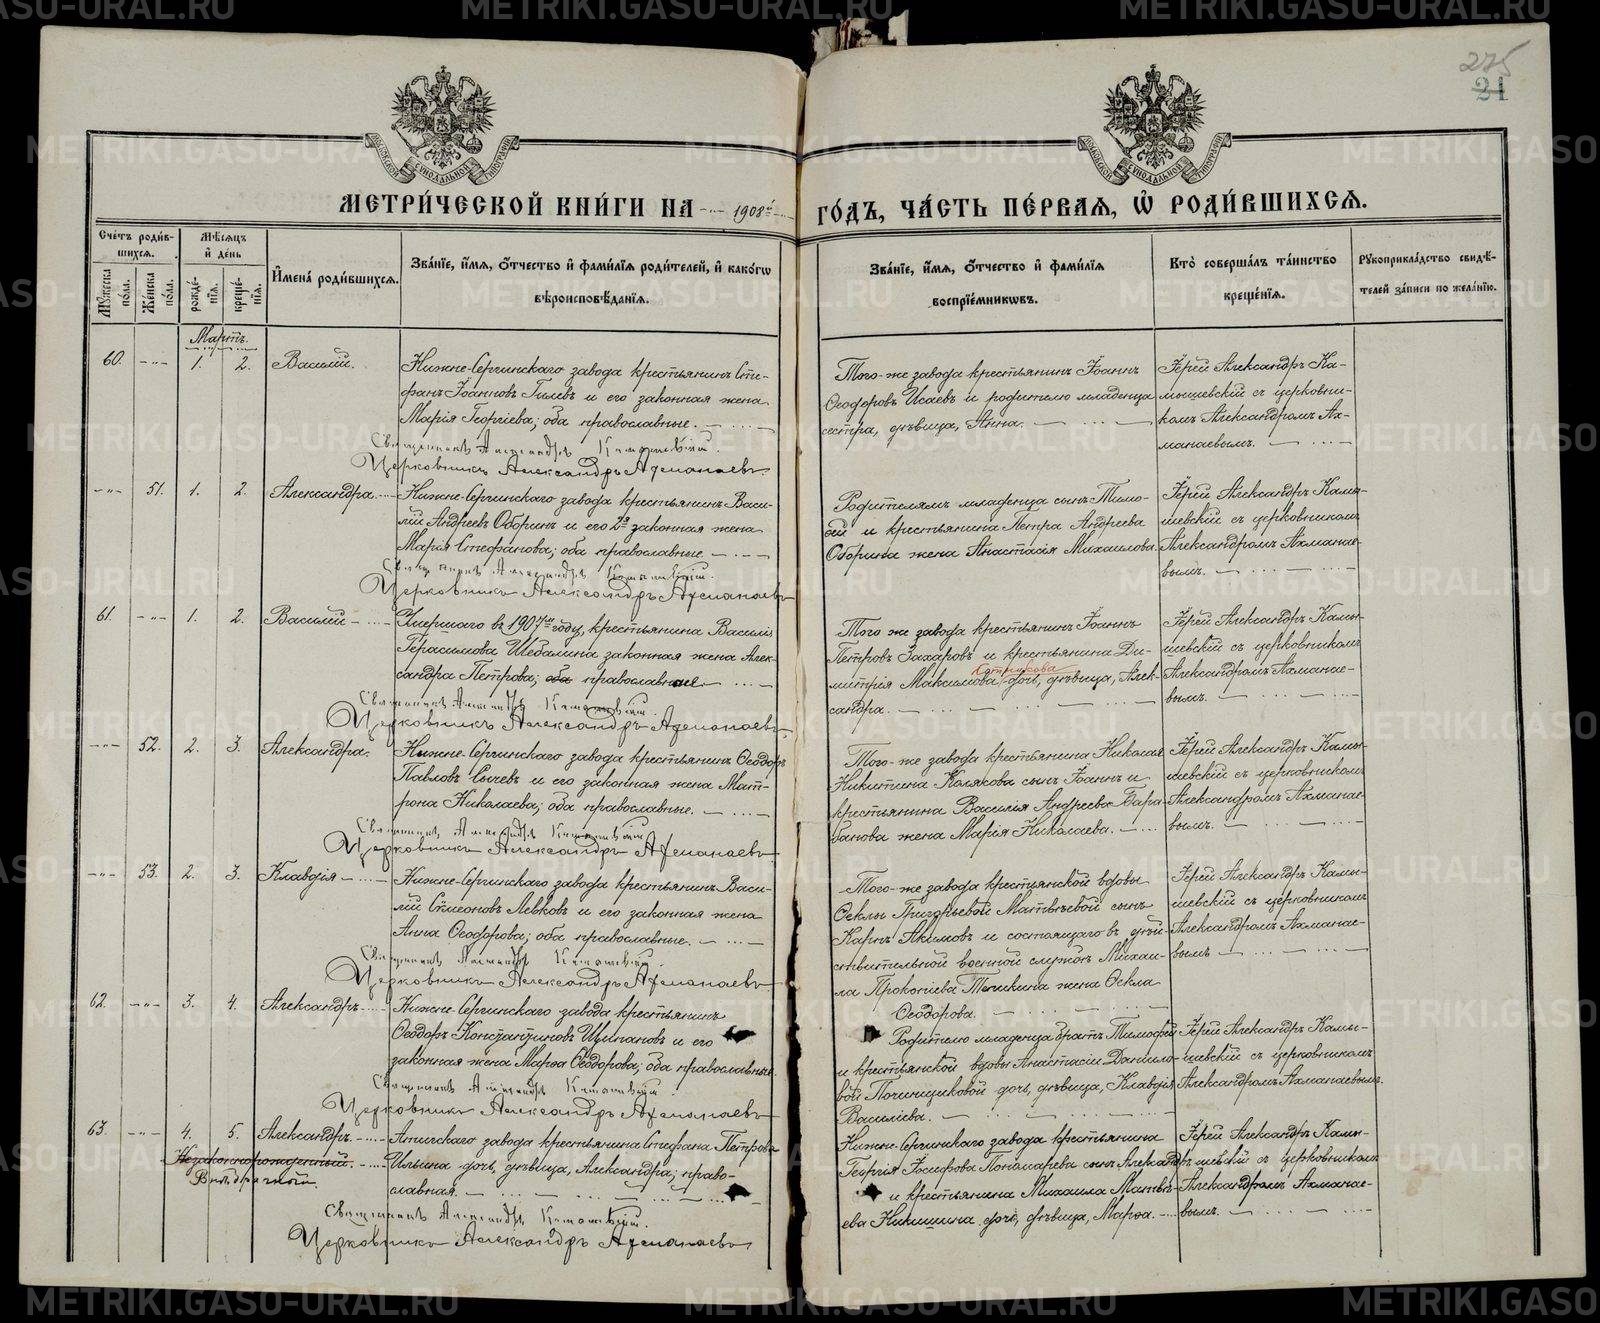 275
21
МЕТРИ́ЧЕСКОЙ КНИ́ГИ НА 1908й ГО́ДЪ, ЧА́СТЬ ПЕ́РВАЯ, Ѡ҆ РОДИ́ВШИХСЯ.
Сче́тъ роди́в-
шихся.
Мꙋ́жеска по́ла.
Же́нска по́ла.
Мѣ́сяцъ и҆ де́нь
рожде́нїя.
креще́нїя.
И҆мена̀ роди́вшихся.
Зва́нїе, и҆́мя, ѻ҆́тчество и҆ фами́лїя роди́телей, и҆ како́гѡ
вѣроисповѣ́данїя.
Зва́нїе, и҆́мя, ѻ҆́тчество и҆ фами́лїя
воспрїе́мникѡвъ.
Кто̀ соверша́лъ та́инство
креще́нїя.
Рꙋкоприкла́дство свидѣ́-
телей за́писи по жела́нїю.
Мартъ.
60. -"- 1. 2. Василій.
Нижне-Сергинскаго завода крестьянинъ Сте-
фанъ Іоанновъ Гилевъ и его законная жена
Марія Георгіева; оба православные.
Священникъ Александръ Камышевскій.
Церковникъ Александръ Ахманаевъ
Того-же завода крестьянинъ Іоаннъ
Ѳеодоровъ Исаевъ и родителю младенца
сестра, дѣвица, Анна.
Іерей Александръ Ка-
мышевскій съ церковни-
комъ Александромъ Ах-
манаевымъ.
-"- 51. 1. 2. Александра.
Нижне-Сергинскаго завода крестьянинъ Васи-
лій Андреевъ Оборинъ и его 2го законная жена
Марія Стефанова; оба православные
Священникъ Александръ Камышевскій.
Церковникъ Александръ Ахманаевъ
Родителямъ младенца сынъ Тимо-
ѳей и крестьянина Петра Андреева
Оборина жена Анастасія Михаилова.
Іерей Александръ Камы-
шевскій съ церковникомъ
Александромъ Ахманае-
вымъ.
61. -"- 1. 2. Василій
Умершаго въ 1907мъ году, крестьянина Василія
Герасимова Шебалина законная жена Алек-
сандра Петрова; оба православная.
Священникъ Александръ Камышевскій.
Церковникъ Александръ Ахманаевъ
Того же завода крестьянинъ Іоаннъ
Петровъ Захаровъ и крестьянина Ди-
митрія Максимова дочь, дѣвица, Алек-
сандра.
Іерей Александръ Камы-
шевскій съ церковникомъ
Александромъ Ахманае-
вымъ.
-"- 52. 2. 3. Александра.
Нижне-Сергинскаго завода крестьянинъ Ѳеодоръ
Павловъ Сычевъ и его законная жена Мат-
рона Николаева; оба православные.
Священникъ Александръ Камышевскій
Церковникъ Александръ Ахманаевъ
Того-же завода крестьянина Николая
Никитина Колясова сынъ Іоаннъ и
крестьянина Василія Андреева Бара-
банова жена Марія Николаева.
Іерей Александръ Камы-
шевскій съ церковникомъ
Александромъ Ахманае-
вымъ.
-"- 53. 2. 3. Клавдія
Нижне-Сергинскаго завода крестьянинъ Васи-
лій Сѵмеоновъ Левковъ и его законная жена
Анна Ѳеодорова; оба православные.
Священникъ Александръ Камышевскій.
Церковникъ Александръ Ахманаевъ
Того-же завода крестьянской вдовы
Ѳеклы Григорьевой Матвѣевой сынъ
Карпъ Акимовъ и состоящаго въ дѣй-
ствительной военной службѣ Михаи-
ла Прокопіева жена Ѳекла
Ѳеодорова.
Іерей Александръ Камы-
шевскій съ церковникомъ
Александромъ Ахманае-
вымъ
62. -"- 3. 4. Александръ
Нижне-Сергинскаго завода крестьянинъ
Ѳеодоръ Константиновъ Щипановъ и его
законная жена Марѳа Ѳеодорова; оба православные
Священникъ Александръ Камышевскій.
Церковникъ Александръ Ахманаевъ
Родителю младенца братъ Тимоѳей
и крестьянской вдовы Анастасіи Данило-
вой Починщиковой дочь, дѣвица, Клавдія
Василіева.
Іерей Александръ Камы-
шевскій съ церковникомъ
Александромъ Ахманаевымъ.
63. -"- 4. 5. Александръ.
Незаконнорожденный.
Внѣбрачный.
Атигскаго завода крестьянина Стефана Петрова
Ильина дочь, дѣвица, Александра; право-
славная.
Священникъ Александръ Камышевскій.
Церковникъ Александръ Ахманаевъ
Нижне-Сергинскаго завода крестьянина
Георгія Іосифова Пономарева сынъ Александръ
и крестьянина Михаила Матвѣ-
ева Никишина дочь, дѣвица, Марѳа.
Іерей Александръ Камы-
шевскій съ церковникомъ
Александромъ Ахманае-
вымъ.
METRIKI.GASO-URAL.RU